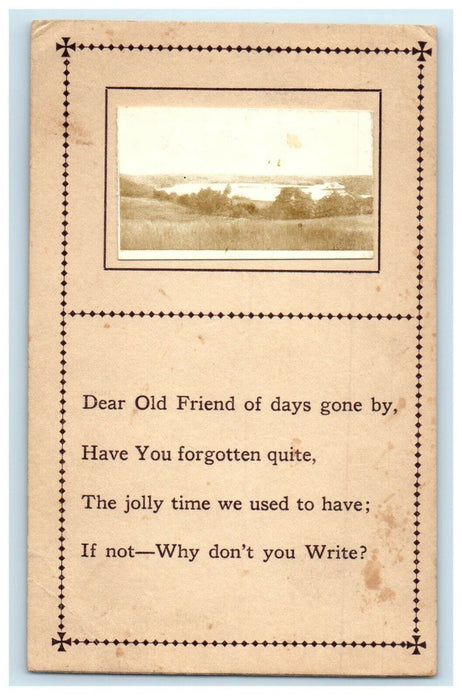 Dear Old Friend of days gone by,
Have You forgotten quite,
The jolly time we used to have;
If not—Why don't you Write?